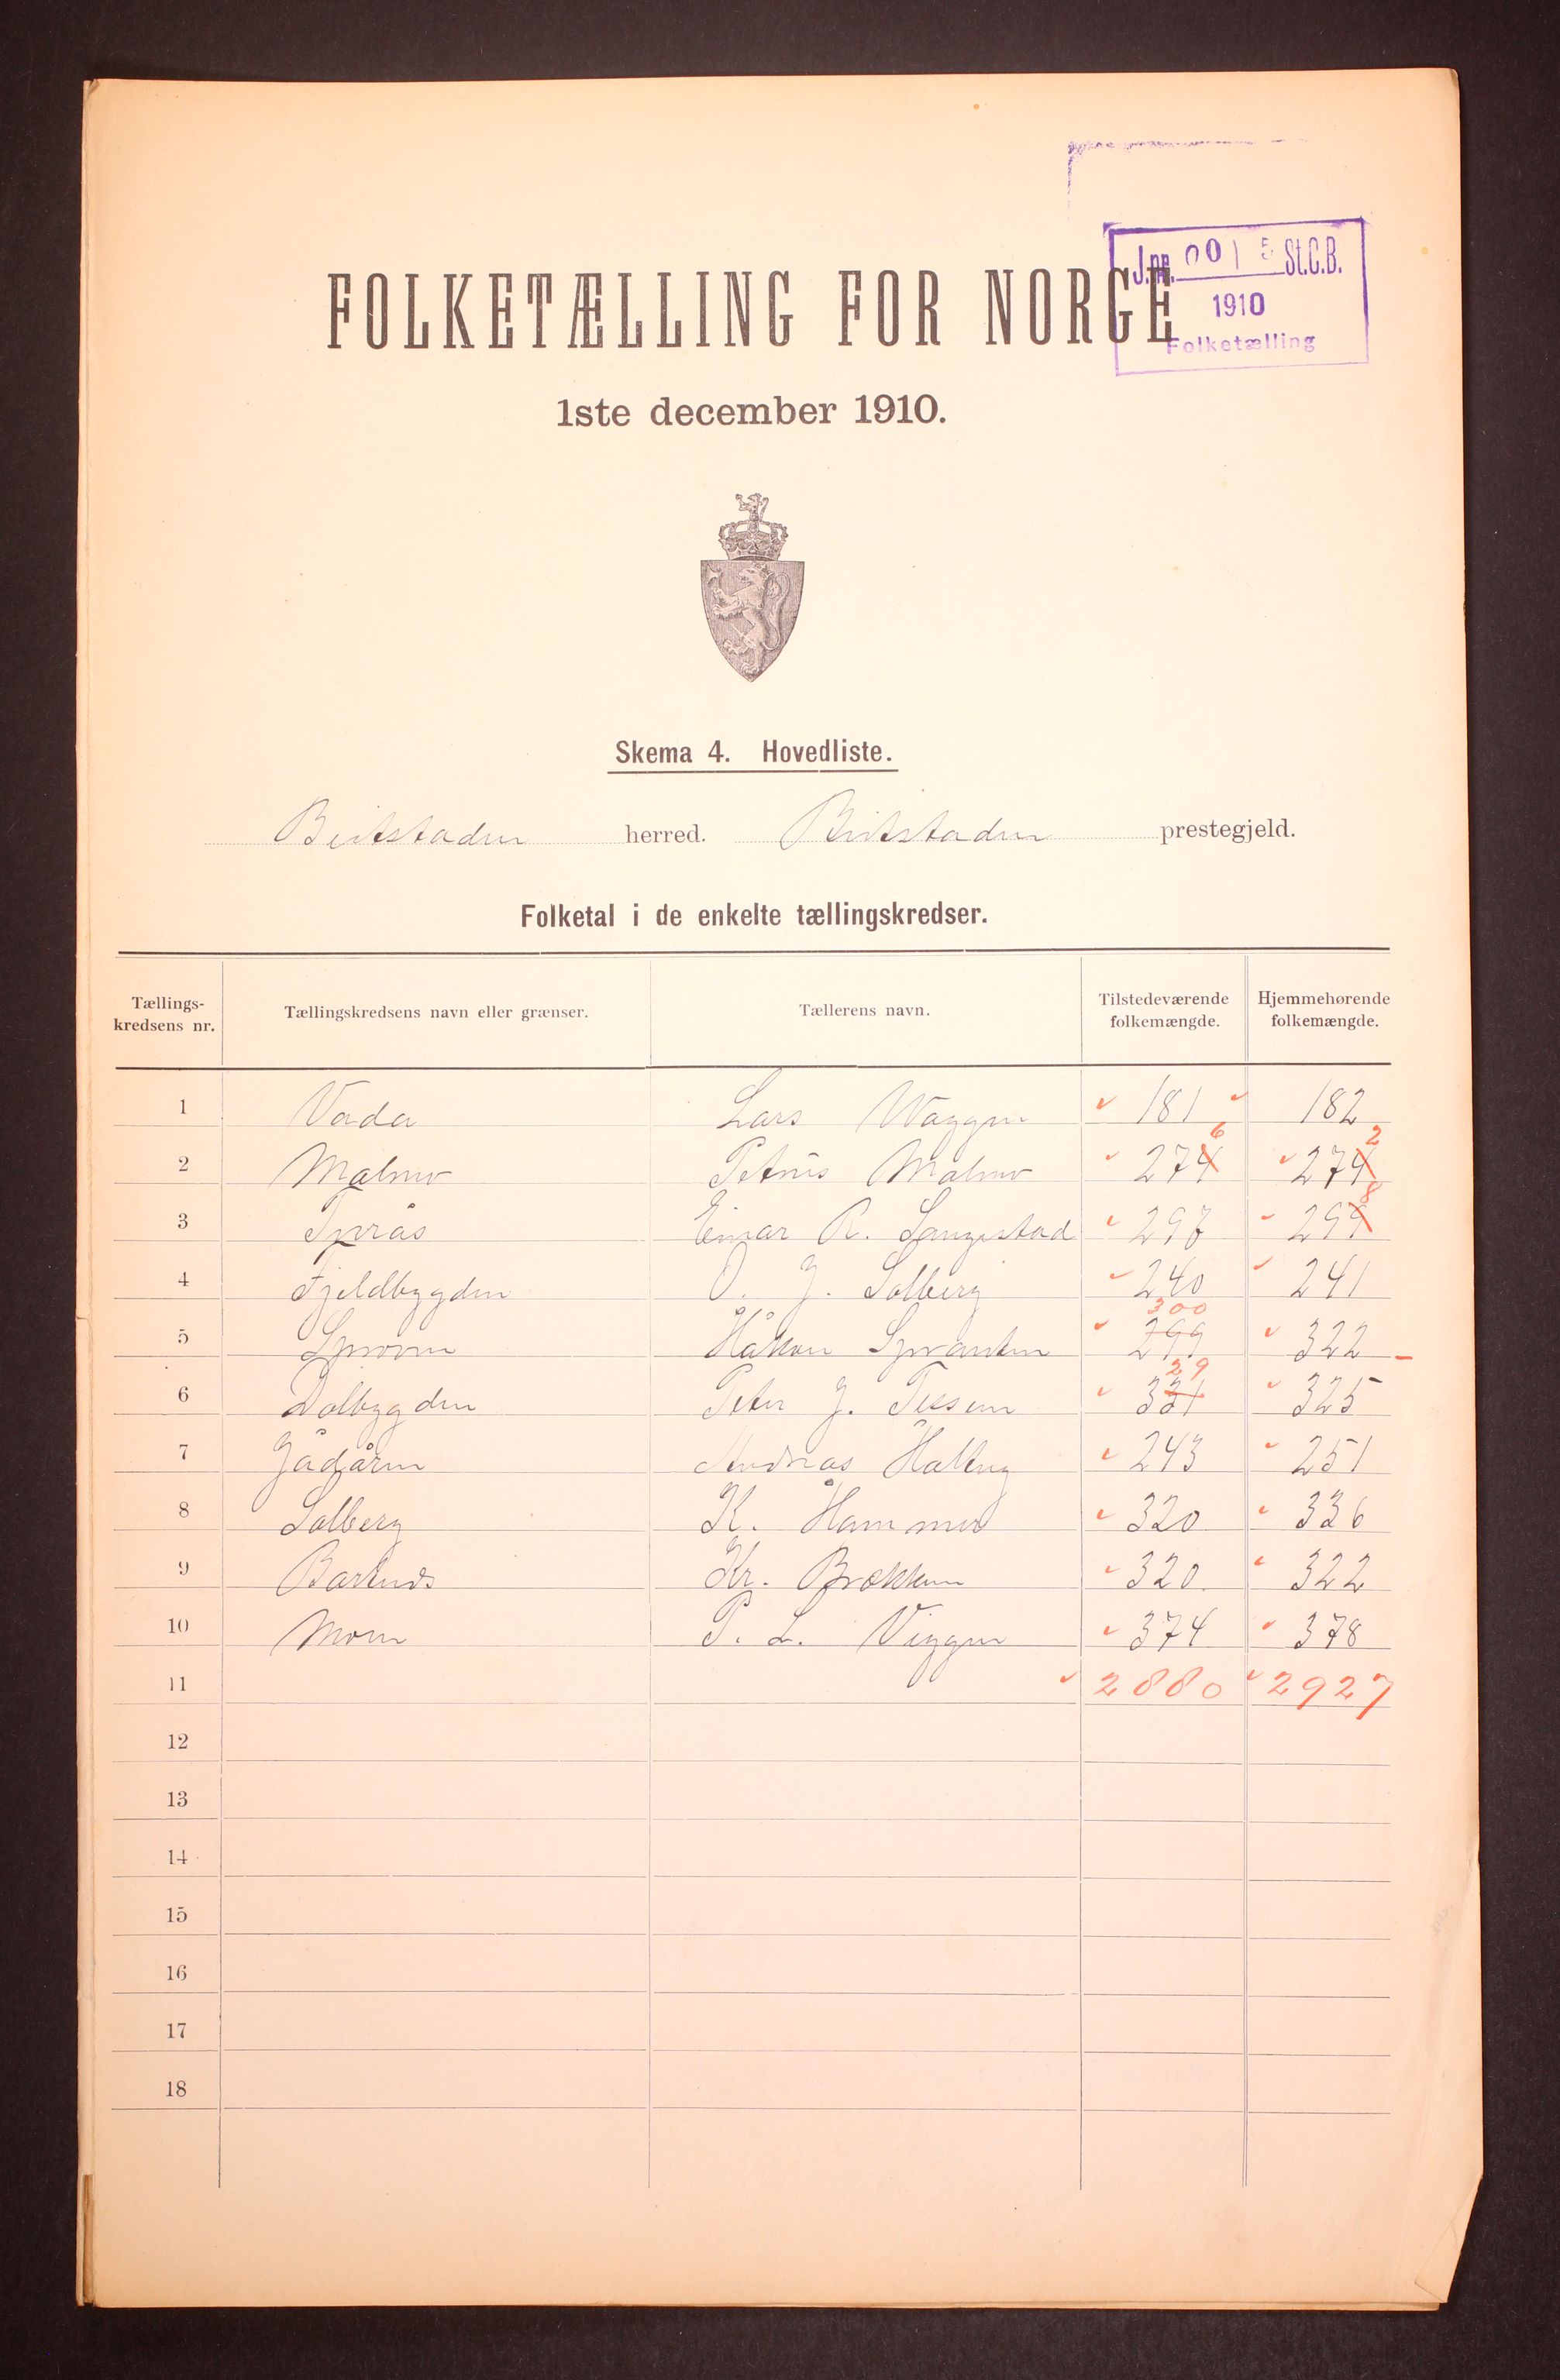 J.nr. 0015 St.C.B.
1910
Folketælling
FOLKETÆLLING FOR NORGE
1ste december 1910.
Skema 4. Hovedliste.
Beitstaden herred. Beitstaden prestegjeld.
Folketal i de enkelte tællingskredser.
Tællings-kredsens nr. Tællingskredsens navn eller grænser. Tællerens navn. Tilstedeværende folkemængde. Hjemmehørende folkemængde.
1 Vada Lars Vaggen 181 182
2 Malmo Petrus Malmo 274 6 274 2
3 Einar R. Langestad 297 299 8
4 Fjeldbygden O. J. Solberg 240 241
5 Håkon 299 300 322
6 Dalbygden Peter J. Tessem 331 29 325
7 Jådåren Andreas 243 251
8 Solberg K. Hammer 320 336
9 Kr. Brækkum 320 322
10 Moen P. L. Viggen 374 378
11 2880 2927
12
13
14
15
16
17
18